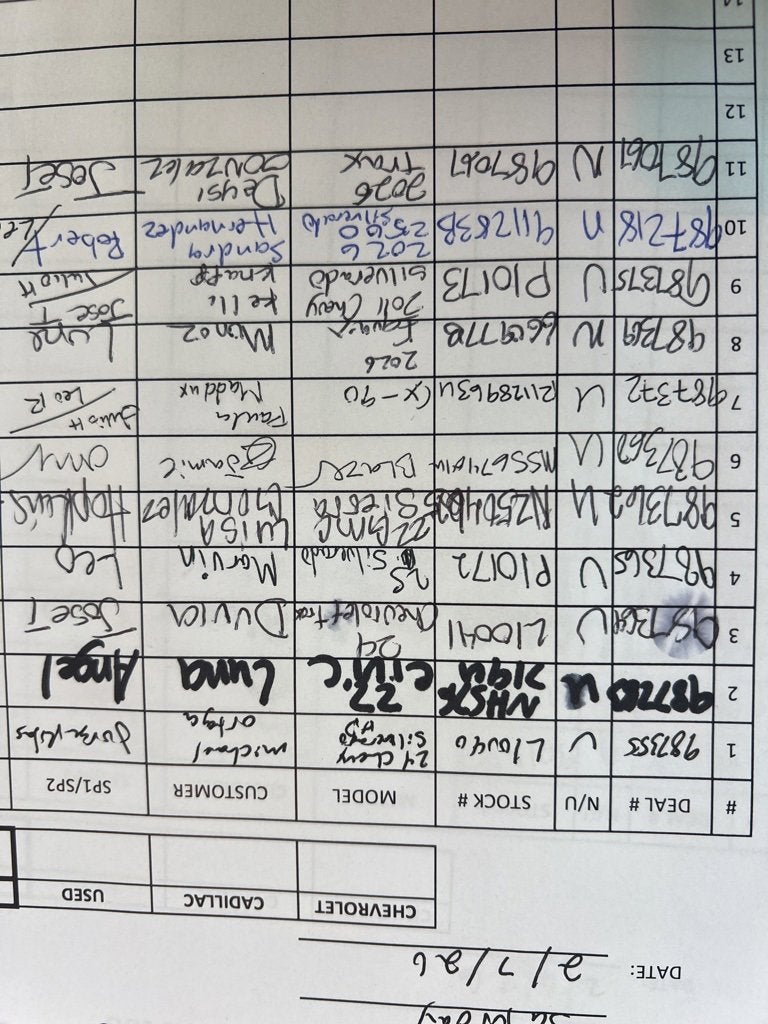 DATE: 2/7/26
CHEVROLET CADILLAC USED
# DEAL # N/U STOCK # MODEL CUSTOMER SP1/SP2
1 987355 U L10040 24 Chevy Silverado HD michael ortega
2 U 22 Civic Luna Angel
3 U L10041 24 Chevrolet Trax Duvier Jose T
4 987365 U P10172 25 Silverado Marvin Leo
5 987362 U 22 GMC Sierra Luisa Gonzalez Hopkins
6 987360 U Blazer Jamie
7 987372 U CX-90 Paula Maddux Julio H / Leo R
8 987369 N 2026 Munoz Lune
9 987375 U P10173 2011 Chevy Silverado Kelli Knapp Jose T / Julio H
10 987218 N 911283B 2026 2500 Silverado Sandra Hernandez Robert/
11 987067 N 987067 2026 Trax Deysi Gonzalez Jose T
12
13
14